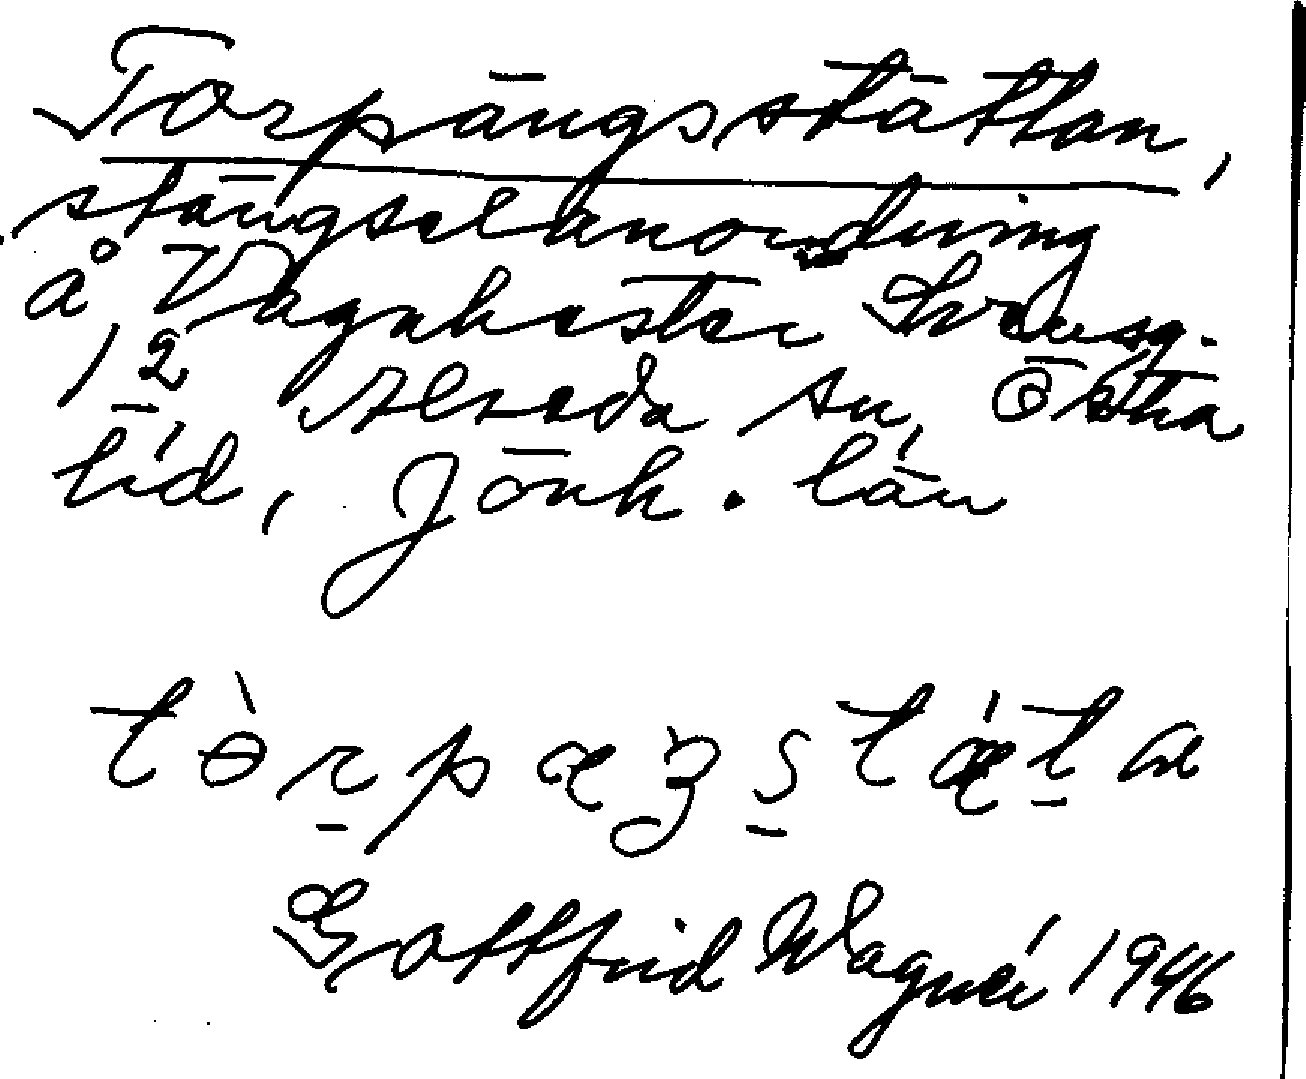 Torpängsstättan,
stängselanordning
å Vagnhester Krusg.
1/2 Alseda sn, Östra
hd, Jönk. län
tòrpæŋstæ̀ta
Gottfrid Wagnér 1946